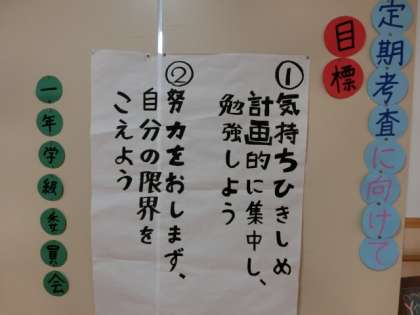 定期考査に向けて
目標
①気持ちひきしめ
計画的に集中し、
勉強しよう
②努力をおしまず、
自分の限界を
こえよう
一年学級委員会